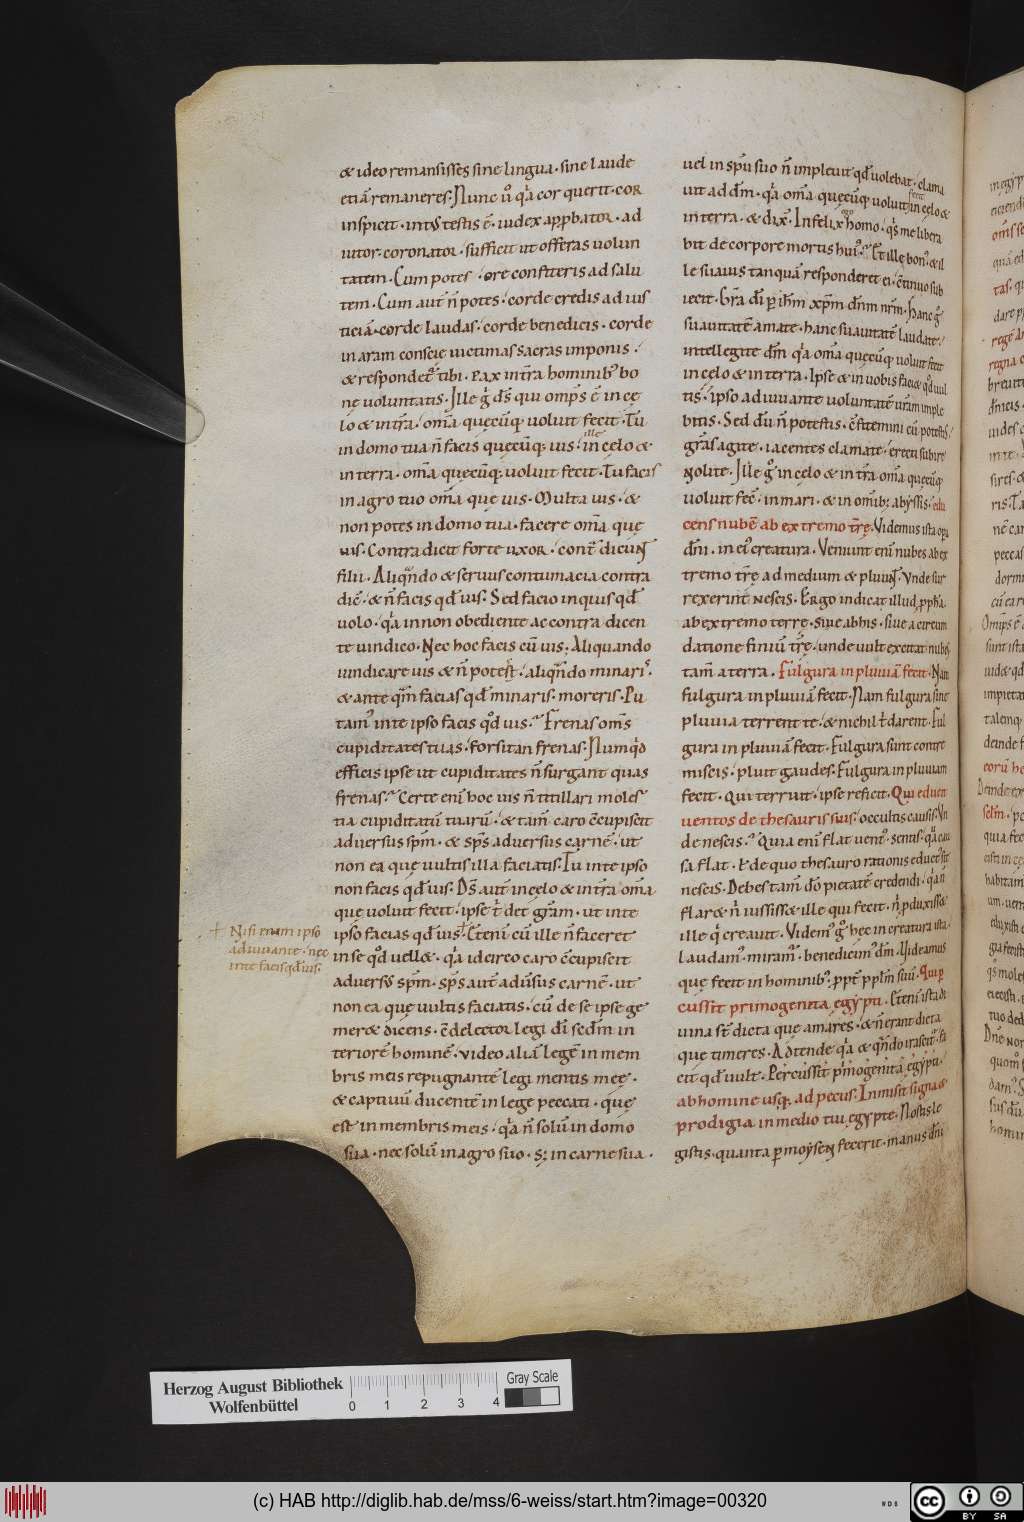 & ideo remansisses sine lingua · sine laude
etiā remaneres. Nunc ū q̇a cor querit · cor
inspicit · intꝰ testis ē · iudex app̱bator · ad
iutor · coronator · sufficit ut offeras uolun
tatem · Cum potes · ore confiteris ad salu
tem · Cum aut̄ n̄ potes · corde credis ad ius
ticiā · corde laudas · corde benedicis · corde
in aram conscie uictimas sacras imponis ·
& respondet͛ tibi · pax int̄ra hominibꝰ bo
nę uoluntatis · Ille g̊ ds̄ qui omp̄s ē in cę
lo & int̄ra · om̄a quęcūq; uoluit fecit · Tu
in domo tua n̄ facis quęcūq; uis · ille in cęlo &
in terra · om̄a quęcūq; uoluit fecit · Tu facis
in agro tuo om̄a que uis · Multa uis · &
non potes in domo tua · facere om̄a quę
uis · Contra dicit forte uxor · cont̄ dicunt
filii · Aliqn̊do & seruus contumacia contra
dic̄ · & n̄ facis qd̄ uis · Sed facio inquis qd̄
uolo · q̇a in non obediente ac contra dicen
te uindico · Nec hoc facis cū uis · Aliquando
uindicare uis & n̄ potest · aliqn̊do minaris ·
& ante qm̄ facias qd̄ minaris · moreris · Pu
tamꝰ inte ipso facis qd̄ uis · Frenas om̄s
cupiditates tuas · forsitan frenas · Numqd̊
efficis ipse ut cupiditates n̄ surgant quas
frenas · Certe eni hoc uis n̄ titillari moles
tia cupiditatū tuarū · & tam̄ caro c̄cupiscit
aduersus spm̄ · & sps̄ aduersus carnē · ut
non ea quę uultis illa faciatis · Tu inte ipso
non facis qd̄ uis · Ds̄ aut̄ in cęlo & int̄ra om̄a
quę uoluit fecit · ipse t̄ det grām · ut inte
ipso facias qd̄ uis · Cēteni cū ille n̄ faceret
in se qd̊ uell& · q̇a idcirco caro c̄cupiscit
aduersꝰ spm̄ · sps̄ aut̄ aduersus carnē · ut
non ea quę uultis faciatis · cū de se ipse ge
mer& dicens · c̄delector legi dī scdm̄ in
teriorē hominē · video aliā legē in mem
bris meis repugnantē legi mentis meę ·
& captiuū ducentē in lege peccati · quę
est in membris meis · q̇a n̄ solū in domo
sua · nec solū in agro suo · s; in carne sua ·
Nisi enim ipso
adiuuante · nec
inte facis qd̄ uis ·
uel in spū suo n̄ impleuit qd̄ uolebat · clama
uit ad dm̄ · q̇a om̄a quęcūq; uoluit fecit in cęlo &
in terra · & dix̄ · Infelix ego homo · qs̄ me libera
bit de corpore mortis huiꝰ · Et ille bonꝰ · & il
le suauis tanquā responderet ei · c̄tinuo sub
iecit · Grā dī p̱ ihm̄ xpm̄ dnm̄ nrm̄ · hanc g̊
suauitatē amate · hanc suauitatē laudate ·
intellegite dm̄ q̇a om̄a quęcūq; uoluit fecit
in cęlo & in terra · Ipse & in uobis faci& qd̊ uul
tis · ipso adiuuante uoluntatē urām imple
bitis · Sed dū n̄ potestis · c̄fitemini cū potestis ·
grās agite · iacentes clamate · erecti subire
nolite · Ille g̊ in cęlo & in t̄ra om̄a quęcūq;
uoluit fec̄ · in mari · & in om̄ib; abyssis · edu
cens nubē ab extremo t̄rę · Videmus ista opera
dn̄i · in eiꝰ creatura · Veniunt eni nubes ab ex
tremo t̄rę ad medium & pluunt · Vnde sur
rexerint nescis · Ergo indicat illud p̱pha ·
ab extremo terrę · siue abhis · siue a circum
datione finiū t̄rę · unde uult excitat nubes
tam̄ a terra · Fulgura in pluuiā fecit · Nam
fulgura in pluuiā fecit · Nam fulgura sine
pluuia terrent te · & nichil t̄ darent · Ful
gura in pluuiā fecit · Fulgura sunt contre
miscis · pluit gaudes · Fulgura in pluuiam
fecit · Qui terruit · ipse reficit · Qui educit
uentos de thesauris suis · occultis causis · Vn
de nescis · Quia eni flat uentꝰ · sentis · qa cau
sa flat · & de quo thesauro rationis educt͛ sit
nescis · Debes tam̄ dō pietatē credendi · qa n̄
flar& n̄ iussiss& ille qui fecit · n̄ p̱duxiss&
ille q̇ creauit · Videmꝰ g̊ hęc in creatura ista ·
laudamꝰ · miramꝰ · benedicimꝰ dm̄ · Uideamus
quę fecit in hominibꝰ · ppt̄ ppłm suū · Qui p̱
cussit primogenita egypti · Cēteni ista di
uina st̄ dicta quę amares · & n̄ erant dicta
quę timeres · Adtende q̇a & qn̊do irascit͛ · fa
cit qd̄ uult · Percussit p̊mogenitā egypti ·
ab homine usq; ad pecus · Inmisit signa &
prodigia in medio tui egypte · Nostis le
gistis · quanta p̱ moysen fecerit · manus dn̄i
Herzog August Bibliothek
Wolfenbüttel
0 1 2 3 4
Gray Scale
(c) HAB http://diglib.hab.de/mss/6-weiss/start.htm?image=00320
WDB
cc BY SA